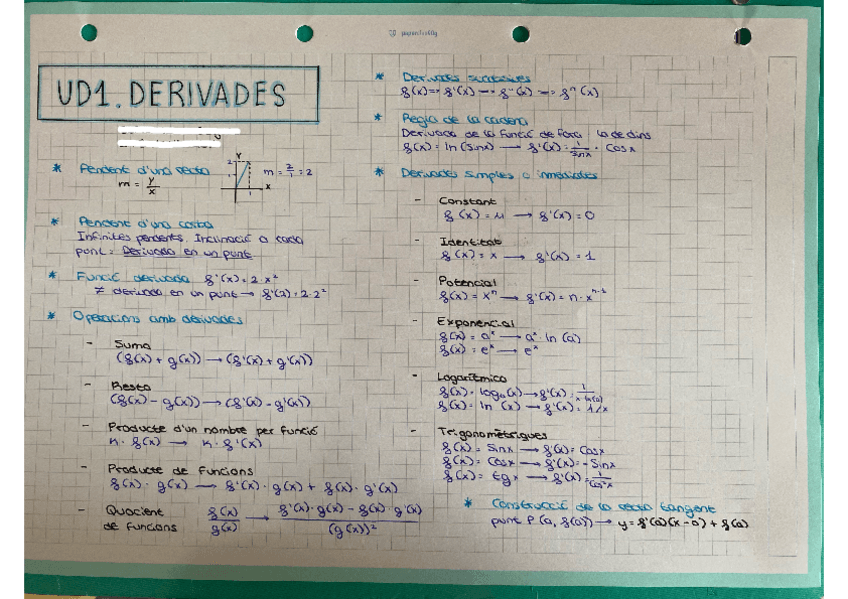 UD1. DERIVADES
* Pendent d'una recta
m = y/x
Y
2
1
X
m = 2/1 = 2
* Pendent d'una corba
Infinites pendents. Inclinació a cada
punt = Derivada en un punt
* Funció derivada f'(x) = 2·x²
≠ derivada en un punt → f'(2) = 2·2²
* Operacions amb derivades
- Suma
(f(x) + g(x)) → (f'(x) + g'(x))
- Resta
(f(x) - g(x)) → (f'(x) - g'(x))
- Producte d'un nombre per funció
k · f(x) → k · f'(x)
- Producte de funcions
f(x) · g(x) → f'(x) · g(x) + f(x) · g'(x)
- Quocient de funcions
f(x)/g(x) → f'(x)·g(x) - f(x)·g'(x)/(g(x))²
* Derivades successives
f(x) → f'(x) → f''(x) → fⁿ(x)
* Regla de la cadena
Derivada de la funció de fora · la de dins
f(x) = ln(sinx) → f'(x) = 1/sinx · cosx
* Derivades simples o immediates
- Constant
f(x) = k → f'(x) = 0
- Identitat
f(x) = x → f'(x) = 1
- Potencial
f(x) = xⁿ → f'(x) = n·xⁿ⁻¹
- Exponencial
f(x) = aˣ → aˣ · ln(a)
f(x) = eˣ → eˣ
- Logarítmica
f(x) = logₐ(x) → f'(x) = 1/x·ln(a)
f(x) = ln(x) → f'(x) = 1/x
- Trigonomètriques
f(x) = sinx → f'(x) = cosx
f(x) = cosx → f'(x) = -sinx
f(x) = tgx → f'(x) = 1/cos²x
* Construcció de la recta tangent
punt P(a, f(a)) → y = f'(a)(x-a) + f(a)